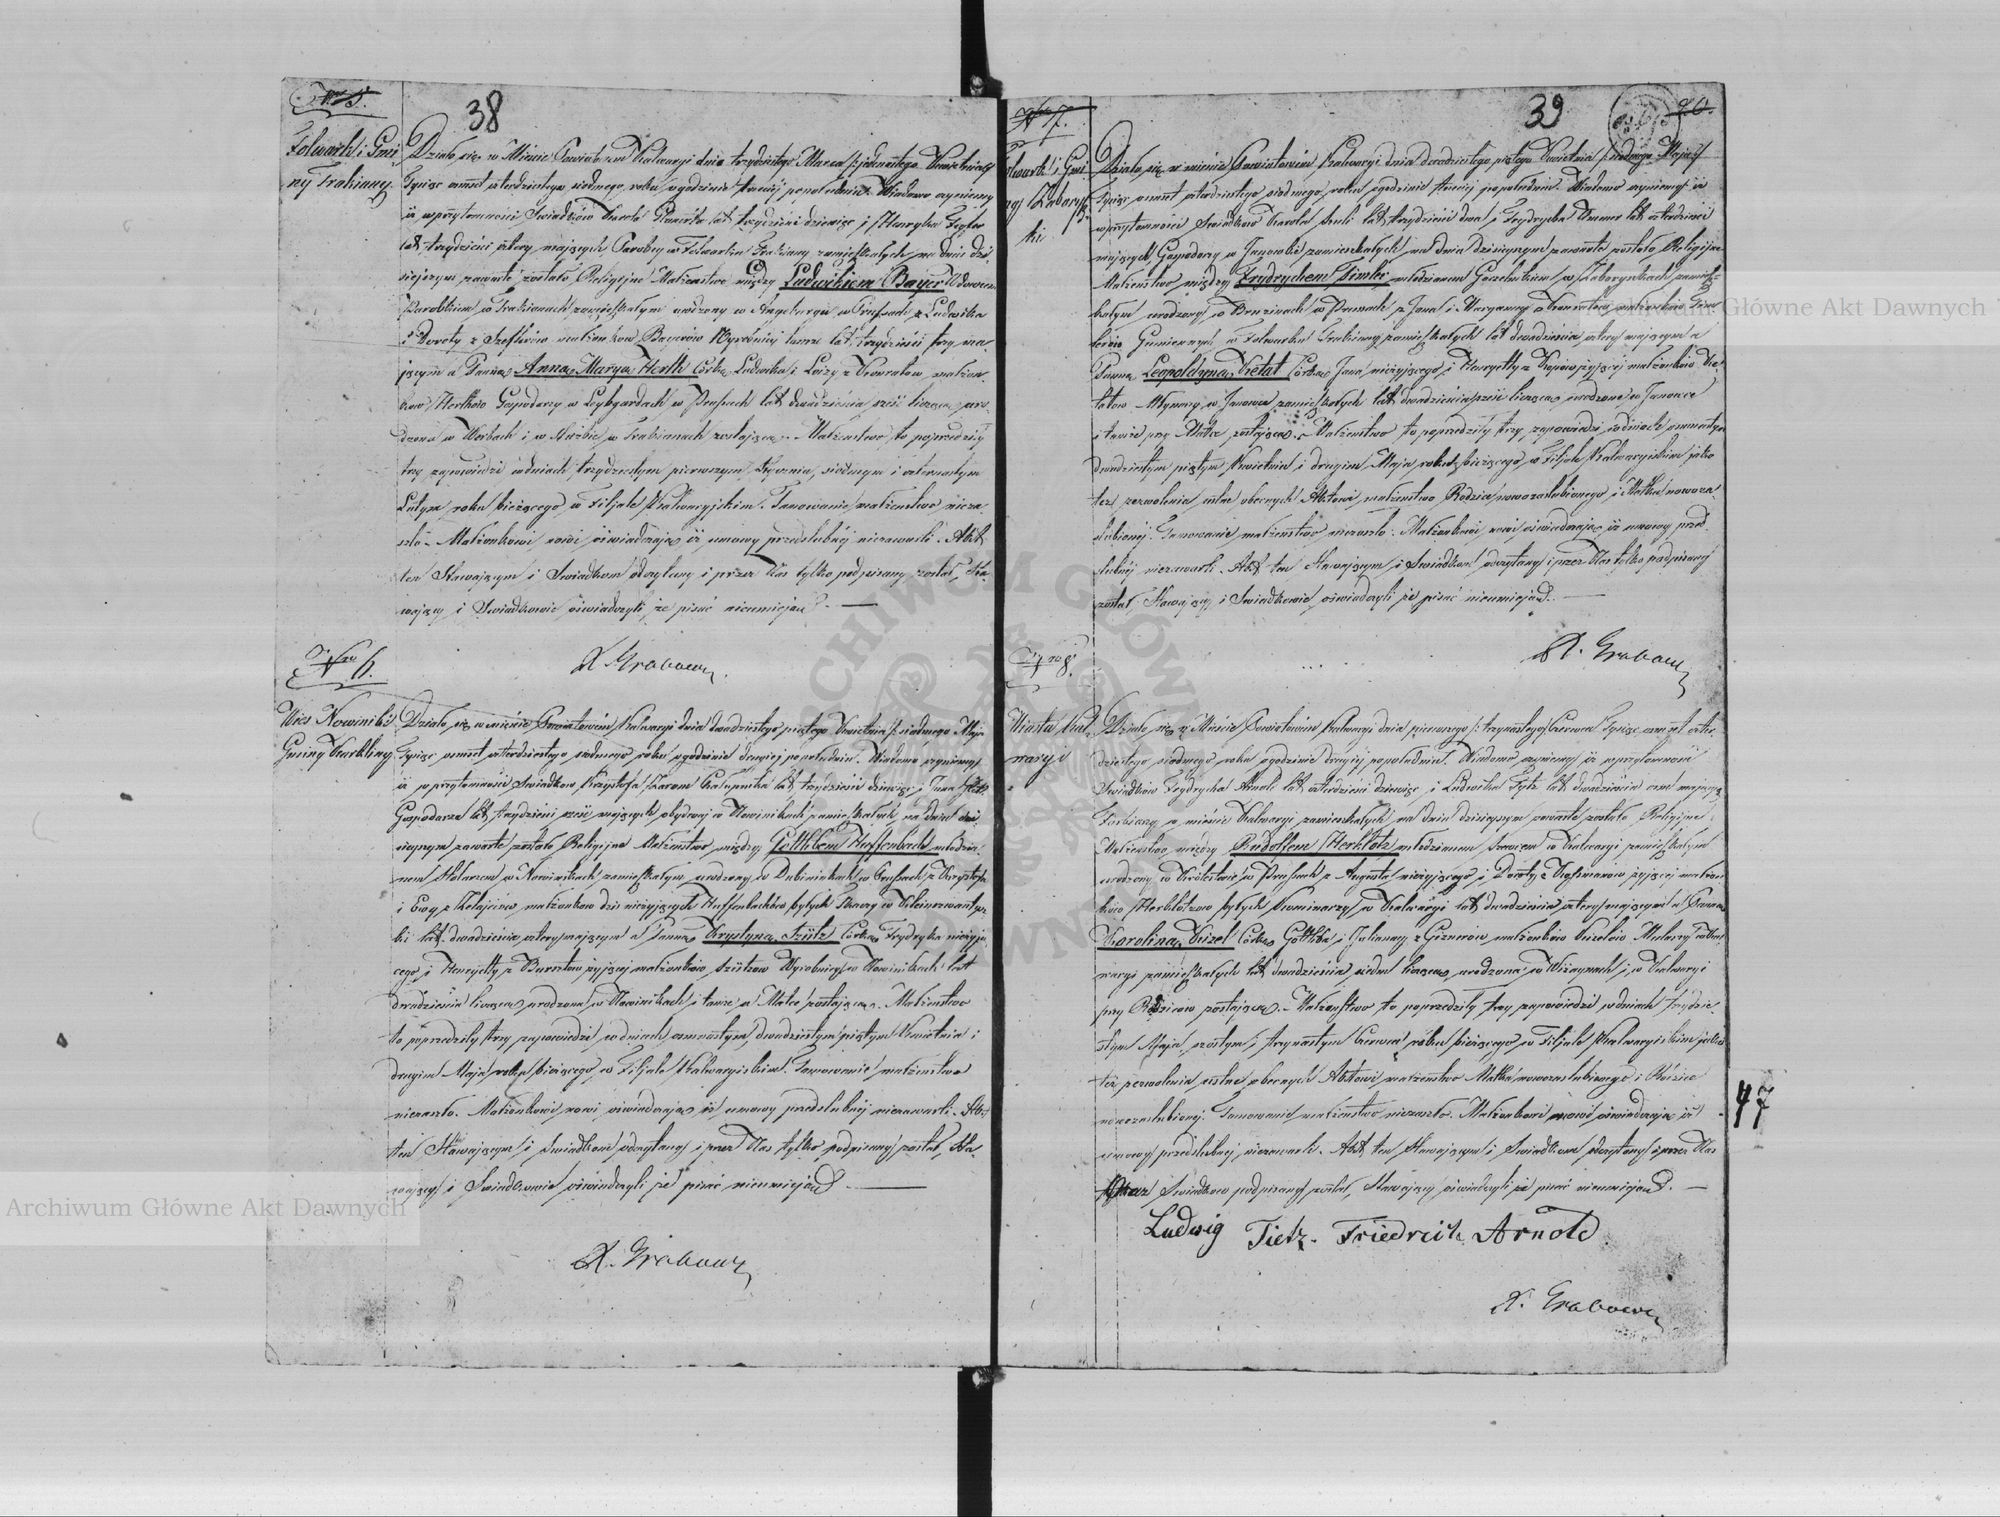 Nro 5.
38
Folwark i Gmi-
ny Trakiany.
Działo się w Mieście Powiatowem Kalwaryi dnia trzydziestego Marca /: jedenastego Kwietnia :/
Tysiąc ośmset czterdziestego siodmego roku o godzinie trzeciej po południu. Wiadomo czyniemy
iż w przytomności Świadków Karola lat trzydzieści dziewięć i Henryka
lat trzydzieści cztery mających Parobcy w Folwarku Trakiany zamieszkałych, na dniu dzi-
siejszym zawarte zostało Religijne Małżeństwo między Ludwikiem Bayer Wdowcem
Parobkiem w Trakianach zamieszkałym urodzony w Angeburgu w Prusach z Ludwika
i Doroty z małżonków Bayerów lat trzydzieści trzy ma-
jącym a Panną Anna Marya Herth Córką Ludwika i Loizy z małżon-
ków Herthów Gospodarzy w w Prusach lat dwadzieścia sześć licząca uro-
dzona w i w służbie w Trakianach zostająca. Małżeństwo to poprzedziły
trzy zapowiedzi w dniach trzydziestym pierwszym Stycznia, siodmym i czternastym
Lutym roku bieżącego w Filjale Kalwaryjskim. Tamowanie małżeństwa nieza-
szło. Małżonkowie nowi oświadczają iż umowy przedślubnéj niezawarli. Akt
ten Stawającym i Świadkom odczytany i przez Nas tylko podpisany został, Sta-
wający i Świadkowie oświadczyli że pisać nieumieją.
X. Grabowski
Nro 6.
Wieś Nowiniki
Gminy Karkliny
Działo się w mieście Powiatowém Kalwaryi dnia dwudziestego piątego Kwietnia /: siodmego Maja
Tysiąc ośmset czterdziestego siodmego roku o godzinie drugiej po południu. Wiadomo czyniemy
iż w przytomności Świadków Krzysztofa Chałupnika lat trzydzieści dziewięć i Jana
Gospodarza lat trzydzieści sześć mających obydwaj w Nowinikach zamieszkałych, na dniu dzi-
siejszym zawarte zostało Religijne Małżeństwo między Gottlibem Huffenbach młodzia-
nem Stolarzem w Nowinikach zamieszkałym urodzony w Dubinikach w Prusach z Krysztofa
i Ewy z małżonków dziś nieżyjących Huffenbachów byłych Tkaczy w
lat dwadzieścia cztery mającym a Panną Krystyną Szütz Córką Frydryka nieżyją-
cego i Henryetty z żyjącej małżonków Szützów Wyrobnicy w Nowinikach lat
dwadzieścia liczącą urodzona w Nowinikach i tamże w Matce zostająca. Małżeństwo
to poprzedziły trzy zapowiedzi w dniach ośmnastym, dwudziestym piątym Kwietnia i
drugim Maja roku bieżącego w Filjale Kalwaryiskim. Tamowanie małżeństwa
niezaszło. Małżonkowie nowi oświadczają iż umowy przedślubnéj niezawarli. Akt
ten Stawającym i Świadkom odczytany i przez Nas tylko podpisany został, Sta-
wający i Świadkowie oświadczyli że pisać nieumieją.
X. Grabowski
Nro 7.
39
20.
Folwark i Gmi-
ny Zabarysz-
ki
Działo się w mieście Powiatowém Kalwaryi dnia dwudziestego piątego Kwietnia /: siodmego Maja :/
Tysiąc ośmset czterdziestego siodmego roku o godzinie trzeciej po południu. Wiadomo czyniemy iż
w przytomności Świadków Karola lat trzydzieści dwa i Frydrycha lat czterdzieści
mających Gospodarzy w Janówce zamieszkałych, na dniu dzisiejszym zawarte zostało Religijne
Małżeństwo między Frydrychem Timler młodzianem Gorzelnikiem w Zabaryszkach zamiesz-
kałym urodzony w w Prusach z Jana i Maryanny małżonków Tim-
lerów w Folwarku Trakiany zamieszkałych lat dwadzieścia cztery mającym a
Panną Leopoldyną Kelat Córką Jana nieżyjącego i Henryetty z żyjącej małżonków Ke-
latów Młynarzy w Janówce zamieszkałych lat dwadzieścia sześć licząca urodzona w Janówce
i tamże przy Matce zostająca. Małżeństwo to poprzedziły trzy zapowiedzi w dniach ośmnastym
dwudziestym piątym Kwietnia i drugim Maja roku bieżącego w Filjale Kalwaryiskim jako
też zezwolenia ustne obecnych Aktowi małżeństwa Rodziców nowozaślubionego i Matki nowoza-
ślubionej. Tamowanie małżeństwa niezaszło. Małżonkowie nowi oświadczają iż umowy przed-
ślubnéj niezawarli. Akt ten Stawającym i Świadkom odczytany i przez Nas tylko podpisany
został, Stawający i Świadkowie oświadczyli że pisać nieumieją.
X. Grabowski
Nro 8.
Miasta Kal-
waryi
Działo się w Mieście Powiatowém Kalwaryi dnia pierwszego /: trzynastego Czerwca Tysiąc ośmset czter-
dziestego siodmego roku o godzinie drugiej po południu. Wiadomo czyniemy iż w przytomności
Świadków Frydrycha Arnold lat czterdzieści dziewięć i Ludwika Tytz lat dwadzieścia ośm mający
Farbiarzy w mieście Kalwaryi zamieszkałych na dniu dzisiejszym zawarte zostało Religijne
Małżeństwo między Rudolfem Herklotz młodzianem Szewcem w Kalwaryi zamieszkałym
urodzony w Królewcu w Prusach z Augusta nieżyjącego i Doroty z żyjącej małżon-
ków Herklotzów byłych Kominiarzy w Kalwaryi lat dwadzieścia cztery mającym a Panną
Karolina Keizel Córką Gottliba i Julianny z małżonków Keizelów Mularzy w Kal-
waryi zamieszkałych lat dwadzieścia siedm licząca urodzona w Wiżaynach i w Kalwaryi
przy Rodzicach zostająca. Małżeństwo to poprzedziły trzy zapowiedzi w dniach trzydzie-
stym Maja, szóstym i trzynastym Czerwca roku bieżącego w Filjale Kalwaryiskim jako
też zezwolenia ustne obecnych Aktowi małżeństwa Matki nowozaślubionego i Rodzice
nowozaślubionej. Tamowanie małżeństwa niezaszło. Małżonkowie nowi oświadczają iż
umowy przedślubnéj niezawarli. Akt ten Stawającym i Świadkom odczytany i przez Nas
oraz Świadków podpisany został, Stawający oświadczyli że pisać nieumieją.
Ludwig Tietz. Friedrich Arnold
X. Grabowski
47
Archiwum Główne Akt Dawnych
Główne Akt Dawnych
ARCHIWUM GŁÓWNE